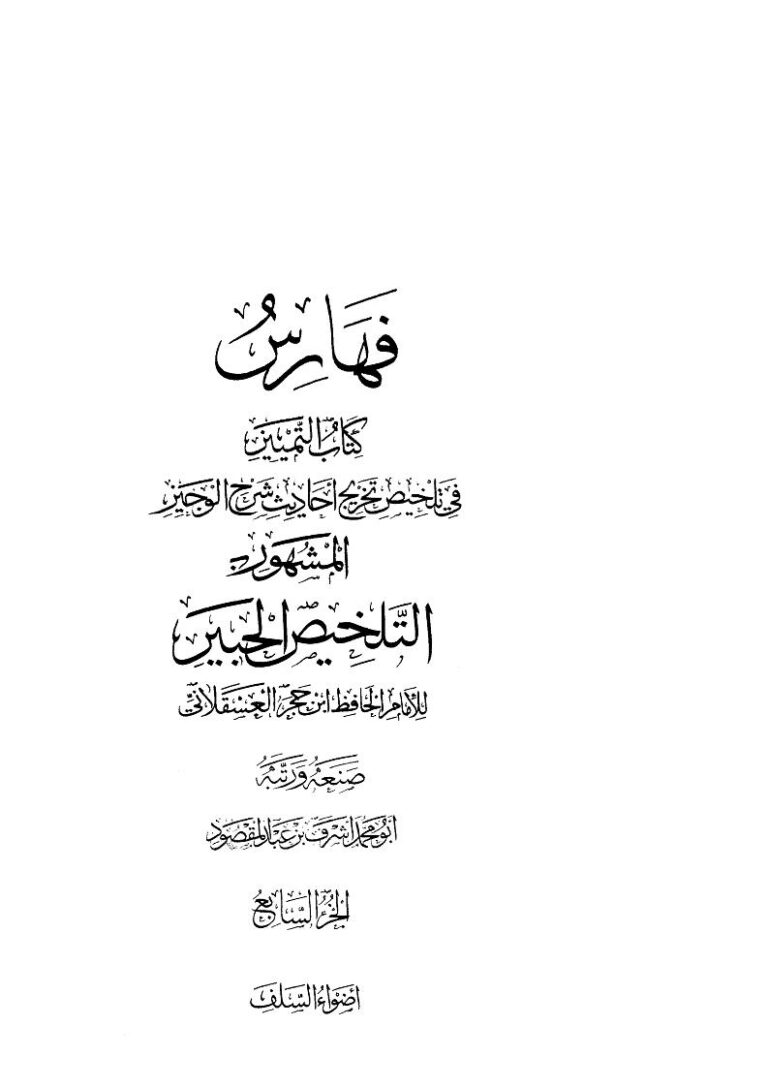 فهارس
كتاب التمييز
في تلخيص تخريج أحاديث شرح الوجيز
المشهور بـ
التلخيص الحبير
للإمام الحافظ ابن حجر العسقلاني
صنعه ورتبه
أبو محمد أشرف بن عبد المقصود
الجزء السابع
أضواء السلف